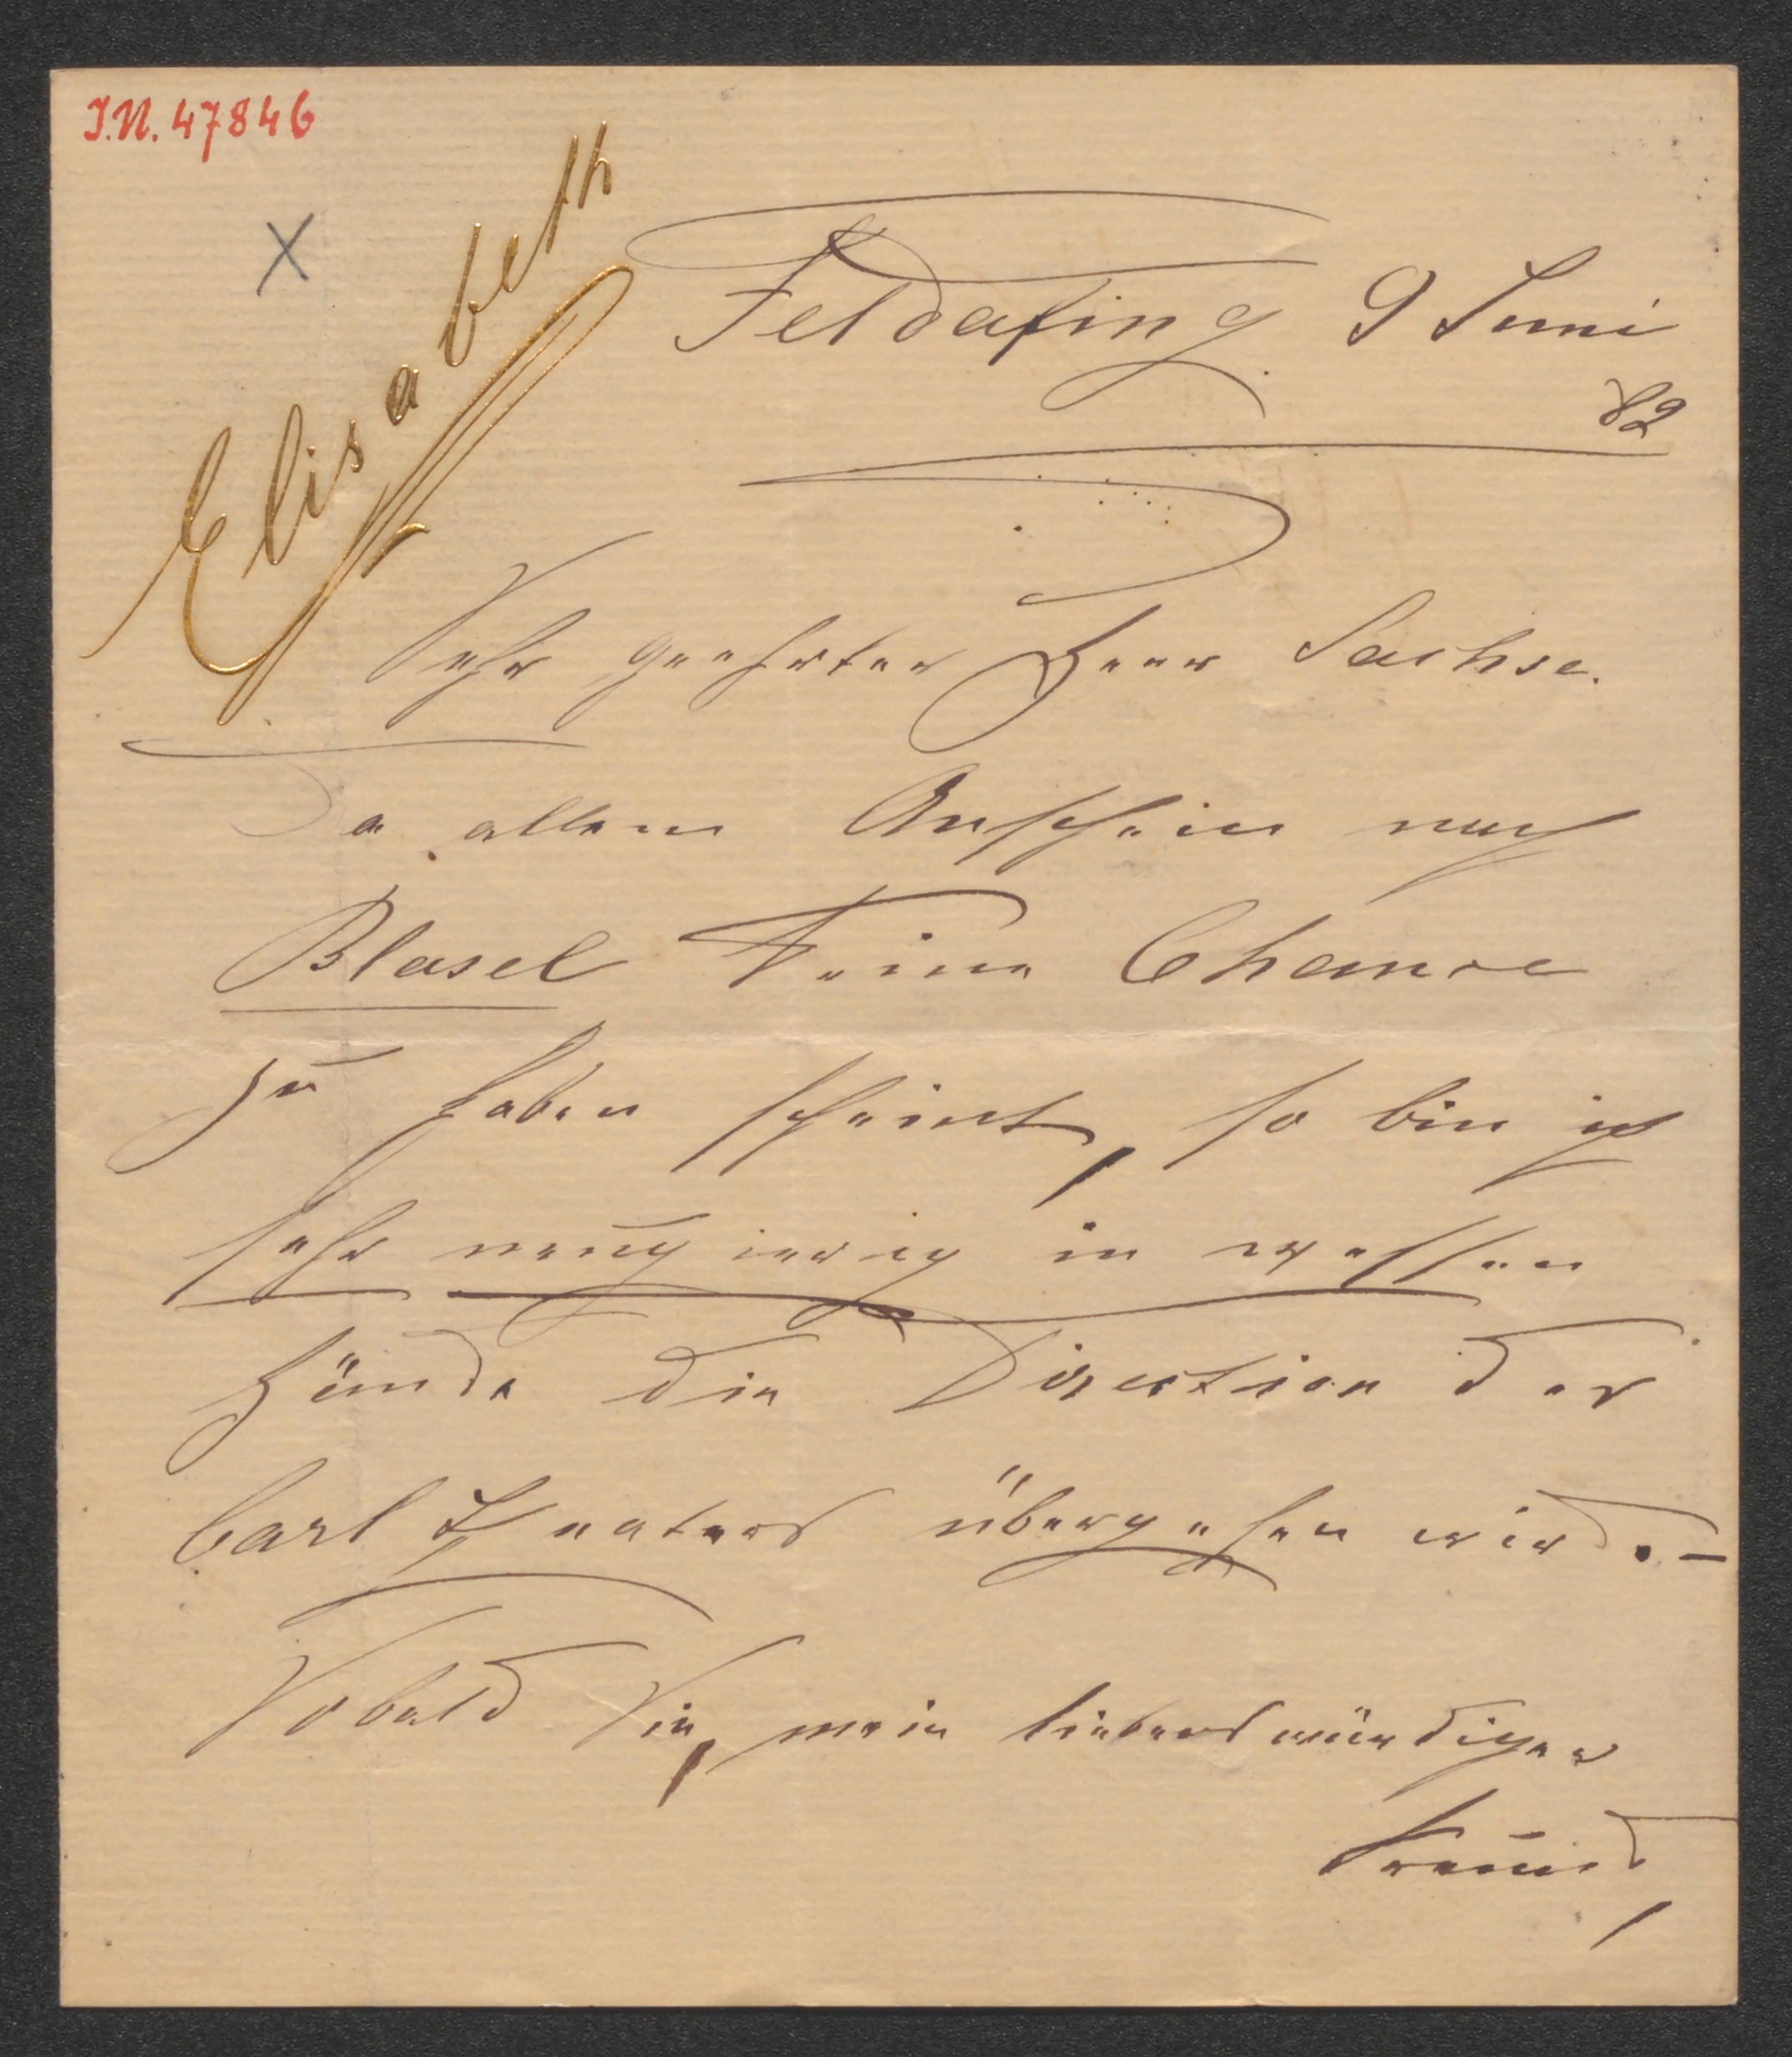 I.N. 47846
X
Elisabeth
Feldafing 9 Juni
82
Sehr geehrter Herr Sachse.
Da allem Anschein nach
Blasel keine Chance
zu haben scheint, so bin ich
sehr neugierig in wessen
Hände die Direction des
Carl Theaters übergehen wird. –
Sobald Sie, mein liebenswürdiger
Freund,